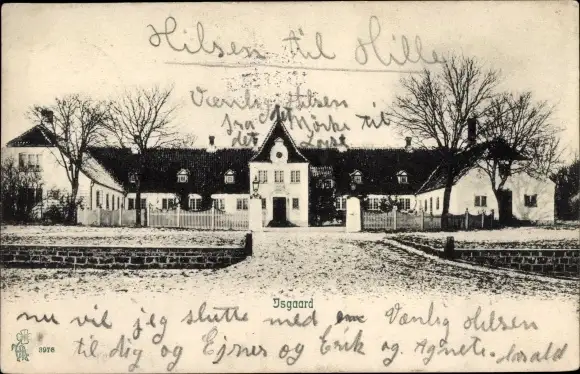 Hilsen til Hille
Vænlig Hilsen
fra det Mörke til
det
Isgaard
nu vil jeg slutte med en Vænlig Hilsen
til dig og Ejner og Erik og Agnete. Harald
3976